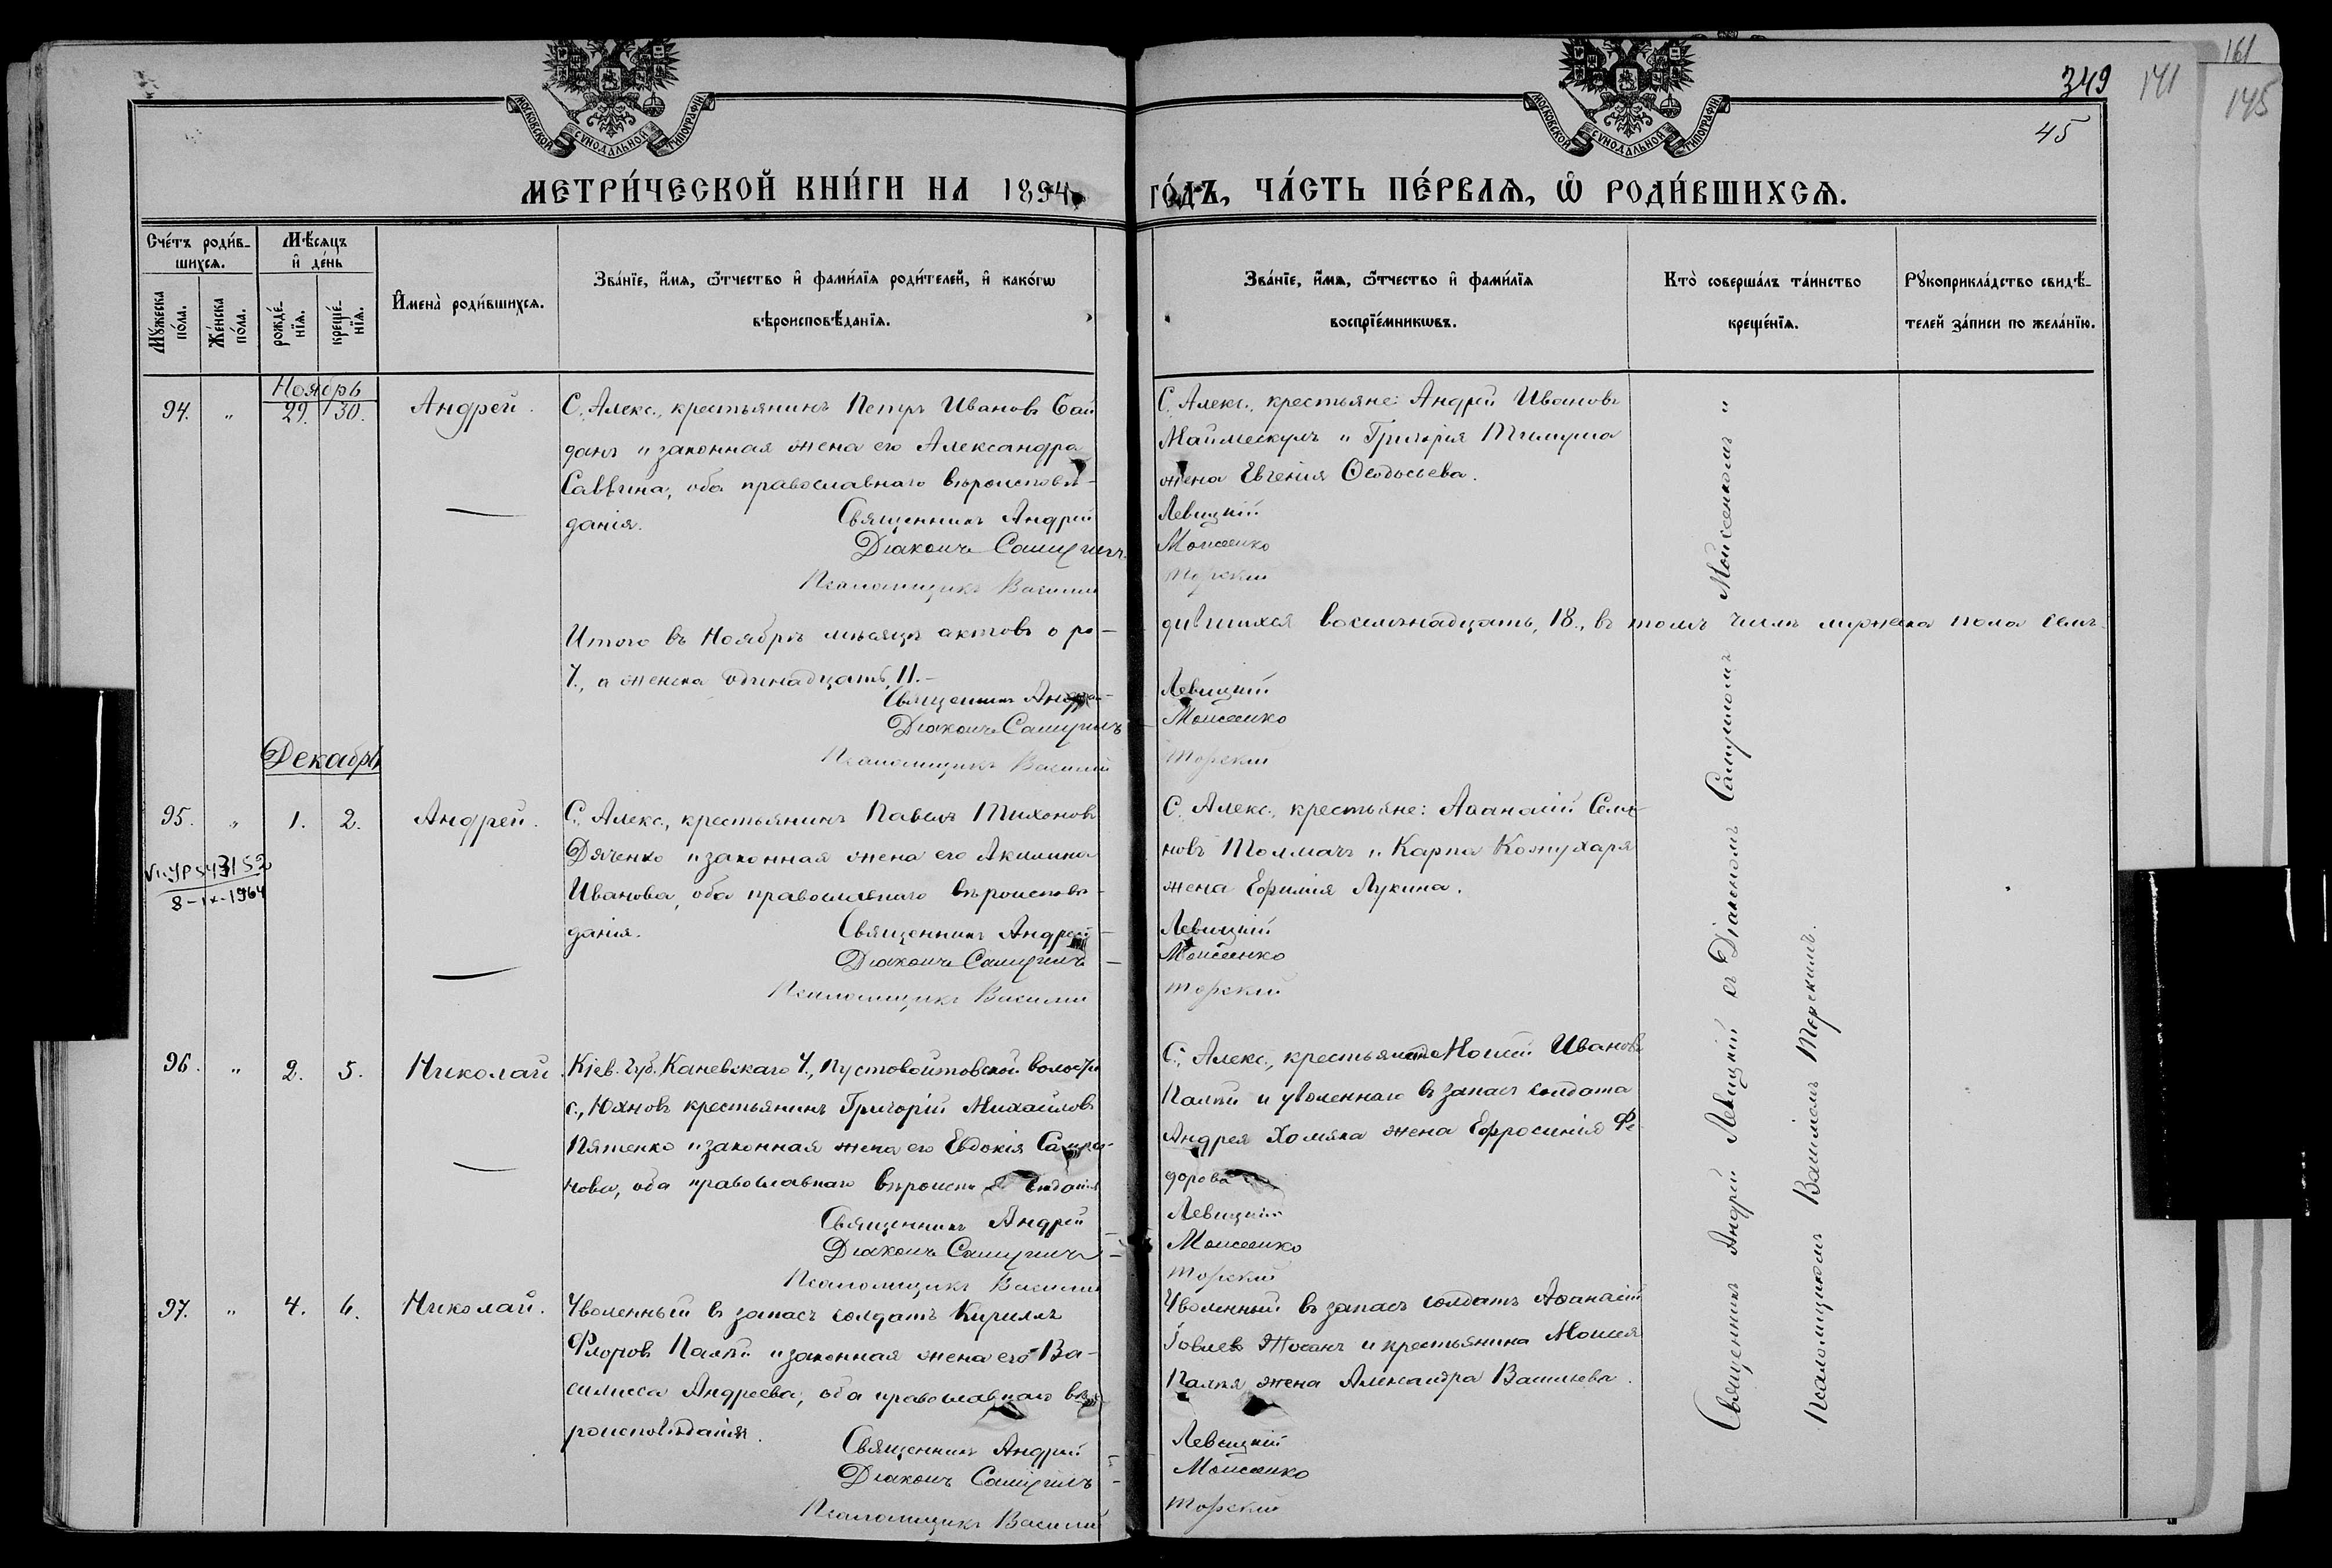 МОСКОВСКОЙ СУНОДАЛЬНОЙ ТИПОГРАФІИ
МОСКОВСКОЙ СУНОДАЛЬНОЙ ТИПОГРАФІИ
161
349
141
145
45
МЕТРИ́ЧЕСКОЙ КНИ́ГИ НА 1894
ГО́ДЪ, ЧА́СТЬ ПЕ́РВАѦ, Ѽ РОДИ́ВШИХСѦ.
Сче́тъ роди́в-
шихсѧ.
Мѣ́сѧцъ
и҆ де́нь
Мꙋ́жеска
по́ла.
Же́нска
по́ла.
рожде́-
нїѧ.
креще́-
нїѧ.
И҆мена̀ роди́вшихсѧ.
Зва́нїе, и҆́мѧ, ѻ҆́тчество и҆ фами́лїѧ роди́телей, и҆ како́гѡ
вѣроисповѣ́данїѧ.
Зва́нїе, и҆́мѧ, ѻ҆́тчество и҆ фами́лїѧ
воспрїе́мникѡвъ.
Кто̀ соверша́лъ та́инство
креще́нїѧ.
Рꙋкоприкла́дство свидѣ́-
телей за́писи по жела́нїю.
Ноябрь
94. „ 29. 30. Андрей.
С. Алекс., крестьянинъ Петръ Ивановъ Бай
данъ и законная жена его Александра
Саввина, оба православнаго вѣроисповѣ-
данія.
Священникъ Андрей
Діаконъ Самуилъ
Псаломщикъ Василій
С. Алекс., крестьяне: Андрей Ивановъ
Маймескулъ и Григорія
жена Евгенія Ѳеодосьева.
Левицкій
Моисеенко
Торскій
Итого въ Ноябрѣ мѣсяцѣ актовъ о ро-
дившихся восемьнадцать, 18., въ томъ числѣ мужеска пола семь
7., а женска одинадцать, 11.-
Священникъ Андрей
Діаконъ Самуилъ
Псаломщикъ Василій
Левицкій
Моисеенко
Торскій
Декабрь
95. „ 1. 2. Андрей.
8-IX-1964
С. Алекс., крестьянинъ Павелъ Тихоновъ
Дяченко и законная жена его Акилина
Иванова, оба православнаго вѣроисповѣ-
данія.
Священникъ Андрей
Діаконъ Самуилъ
Псаломщикъ Василій
С. Алекс., крестьяне: Аѳанасій Семе-
новъ Толмачъ и Карпа Кожухаря
жена Ефимія Лукина.
Левицкій
Моисеенко
Торскій
96. „ 2. 5. Николай.
Кіев. Губ. Каневскаго У., Пустовойтовской волости
с., Юхновъ крестьянинъ Григорій Михайловъ
Пятенко и законная жена его Евдокія
нова, оба православнаго вѣроисповѣданія
Священникъ Андрей
Діаконъ Самуилъ
Псаломщикъ Василій
С. Алекс., крестьянинъ Моисей Ивановъ
Палій и уволеннаго въ запасъ солдата
Андрея Хомяка жена Ефросинія Ѳе
дорова
Левицкій
Моисеенко
Торскій
97. „ 4. 6. Николай.
Уволенный въ запасъ солдатъ Кириллъ
Флоровъ Палій и законная жена его Ва-
силисса Андреева, оба православнаго вѣ
роисповѣданія.
Священникъ Андрей
Діаконъ Самуилъ
Псаломщикъ Василій
Уволенный въ запасъ солдатъ Аѳанасій
Іовлевъ Жосанъ и крестьянина Моисея
Палія жена Александра Васильева.
Левицкій
Моисеенко
Торскій
Священникъ Андрей Левицкій съ Діакономъ Самуиломъ Мойсеенкомъ и
Псаломщикомъ Василіемъ Торскимъ.